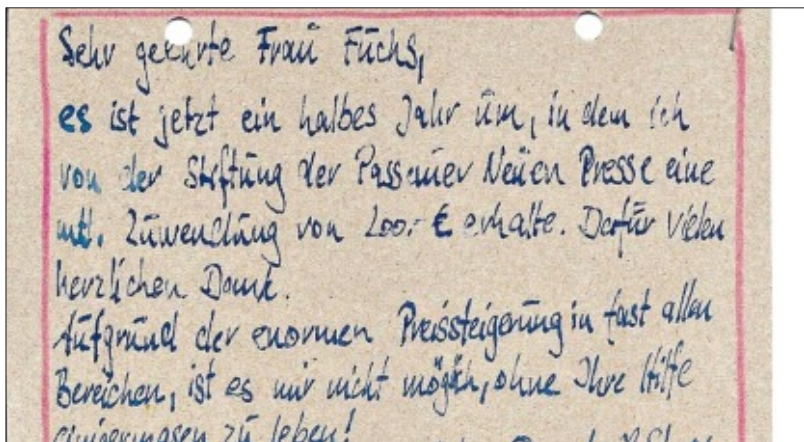 Sehr geehrte Frau Fuchs,
es ist jetzt ein halbes Jahr um, in dem ich
von der Stiftung der Passauer Neuen Presse eine
mtl. Zuwendung von 200.- € erhalte. Dafür vielen
herzlichen Dank.
Aufgrund der enormen Preissteigerung in fast allen
Bereichen, ist es mir nicht möglich, ohne Ihre Hilfe
einigermaßen zu leben!